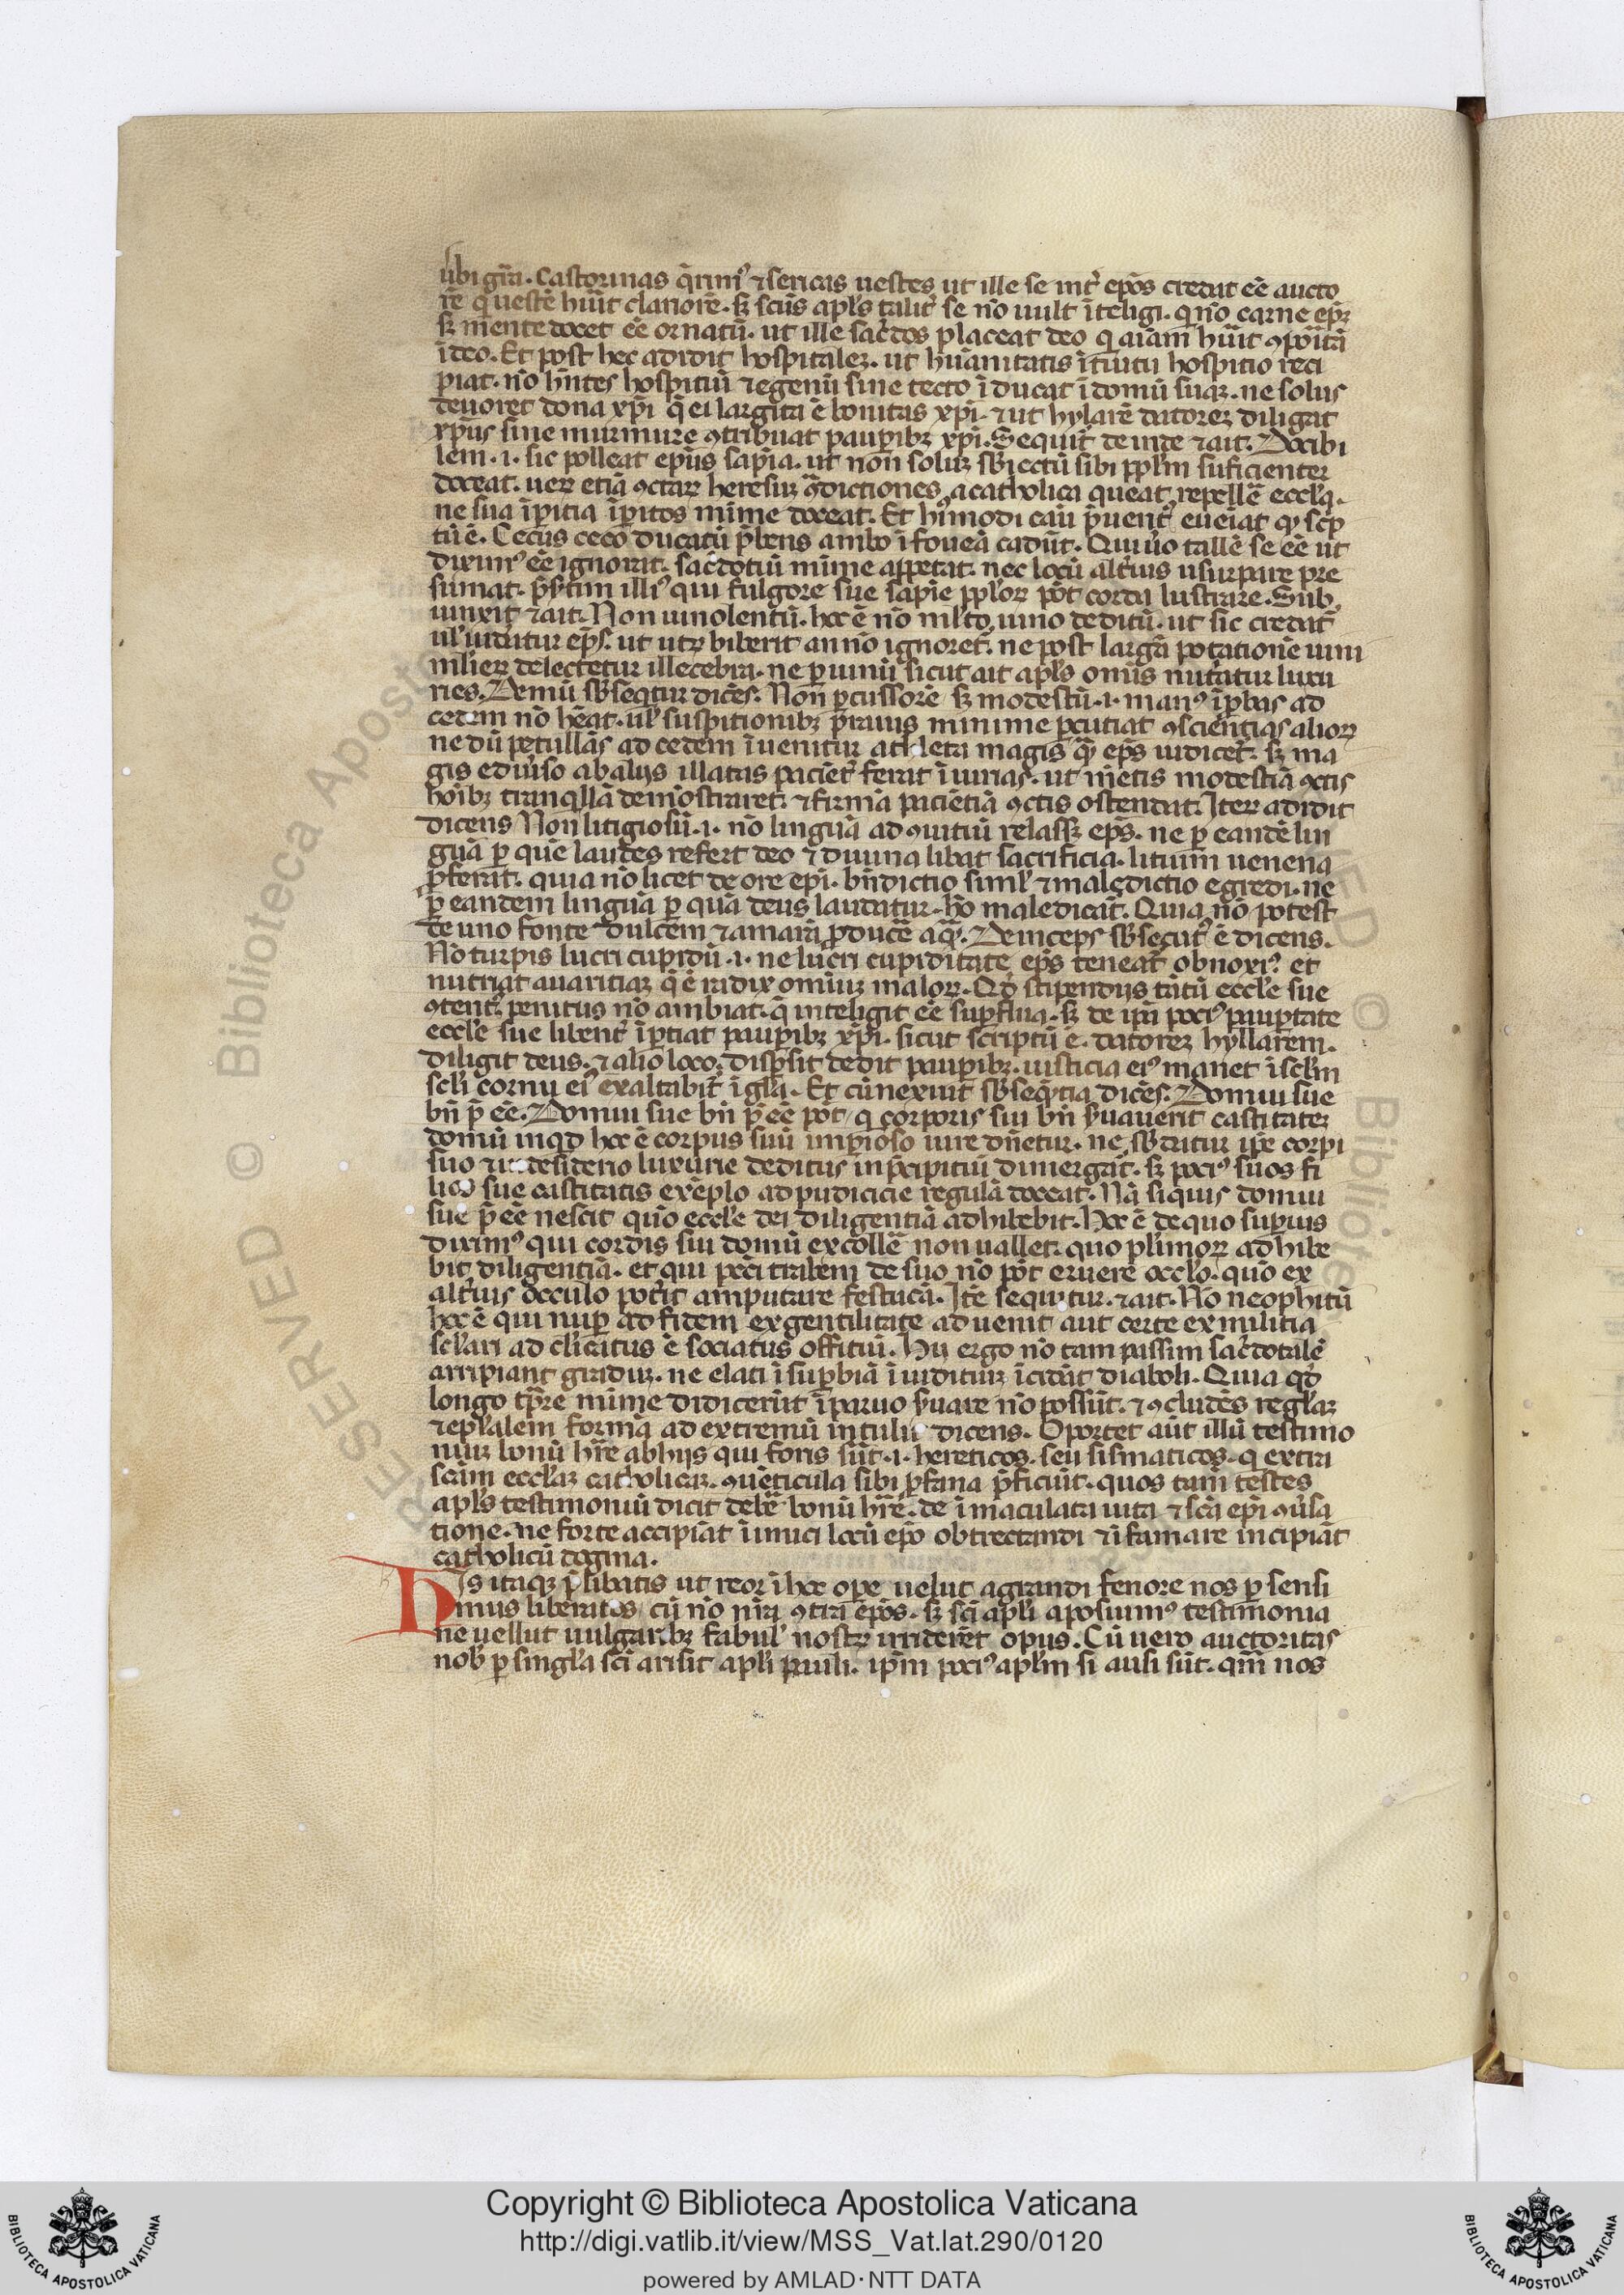 ubi gr̄a. Castorinas q̄rim⁹ ⁊ sericas uestes ut ille se int̄ ep̄os credat eē aucto
rē q̇ uestē hūit clariorē. sꝫ scūs apl̄s talit̄ se nō uult īteligi. q̇ nō carne ep̄ꝫ
sꝫ mente docet eē ornatū. ut ille sac̄dos placeat deo q̇ aīam hūit ꝯpōitā
ī deo. Et post hec addidit hospitaleꝫ. ut hūanitatis ītuitu hospitio reci
piat. nō hn̄tes hospitiū ⁊ egenū sine tecto īducat ī domū suaꝫ. ne solus
deuoret dona xp̄i q̄ ei largita ē bonitas xp̄i. ⁊ ut hylarē datoreꝫ diligat
xp̄us sine murmure ꝯtribuat paup̲ibꝫ xp̄i. Sequit̄ deinde ⁊ ait. Docibi
lem .i. sic polleat ep̄us sapīa. ut non soluꝫ sb̄iectū sibi pp̄lm suficienter
doceat. ueꝝ etiā ꝯctaꝝ heresuꝫ ꝯ̄dictiones a catholica queat repellē eccl̄a.
ne sua īp̲itia īp̲itos mīme doceat. Et hui⁹modi cāu p̄uent⁹ eueīat qꝫ scp̄
tū ē. Cecus ceco ducatū p̄bens ambo ī foueā cadūt. Qui u̇o tallē se eē ut
dixim⁹ eē ignorat. sac̄dotiū mīme appetat. nec locū alt̄ius usurpare pre
sumat. p̄sertim illi⁹ qui fulgore sue sapīe pp̄loꝝ pōt corda lustrare. Sub
iunxit ⁊ ait. Non uinolentū. hoc ē nō ml̄to uino deditū. ut sic credat̄
ul̄ uideatur ep̄s. ut utꝝ biberit an nō ignoret̄. ne post largā potationē uini
mulieꝝ delectetur illecebra. ne p̲ uinū sicut ait apl̄s omīs nutriatur luxu
ries. Demū sb̄seqt̄ur dicēs. Non p̲cussorē sꝫ modestū .i. man⁹ īp̲bas ad
cedem nō hēat. ul̄ suspitionibꝫ prauis minime p̲cutiat ꝯscientias alioꝝ
ne dū petullās ad cedem īuenitur athleta magis qꝫ ep̄s iudicet̄. sꝫ ma
gis ediu̇so ab alijs illatas pacient̄ ferat īiurias. ut mētis modestiā ꝯctis
hoībꝫ tranqllā demōstraret. ⁊ firmā pacientiā ꝯctis ostendat. Iteꝝ addidit
dicens Non litigiosū .i. nō linguā ad ꝯuitiū relasset ep̄s. ne p̲ eandē lin
guā p̲ quē laudes refert deo ⁊ diuina libat sacrificia. litium uenena
ꝓferat. quia nō licet de ore ep̄i. bn̄dictio simul̄ ⁊ maledictio egredi. ne
p̲ eandem linguā p̲ quā deus laudatur. hō maledicat̄. Quia nō potest
de uno fonte dulcem ⁊ amarā ꝓducē aquā. Deinceps sb̄secut⁹ ē dicens.
Nō turpis lucri cupidū .i. ne lucri cupiditate ep̄s teneat̄ obnoxi⁹ et
nutriat auaritiaꝫ q̄ ē radix omniuꝫ maloꝝ. Qd̄ stipendijs tātū eccl̄e sue
ꝯtent⁹ penitus nō ambiat. q̄ inteligit eē sup̲flua. sꝫ de ipā poci⁹ paup̲tate
eccl̄e sue libent̄ īp̲tiat paup̲ibꝫ xp̄i. sicut scriptū ē. datoreꝫ hyllarem.
diligit deus. ⁊ alio loco. disp̲sit dedit paup̲ibꝫ. iusticia ei⁹ manet ī scl̄m
scl̄i cornu ei⁹ exaltabit̄ ī gl̄a. Et cū nexuit sb̄seqn̄tia dicēs. Domui sue
bn̄ p̄eē. Domui sue bn̄ p̄eē pōt q̇ corporis sui bn̄ seruauerit castitateꝫ
domū inqd̄ hoc ē corpus suū imp̲ioso iure dn̄etur. ne sb̄datur ip̄e corpi
suo ⁊ ut desiderio luxurie deditus in p̄cipitiū dimergat̄. sꝫ poci⁹ suos fi
lios sue castitatis exēplo ad pudicicie regulā doceat. Nā siquis domui
sue p̄eē nescit quō eccl̄e dei diligentiā adhibebit. Hoc ē de quo sup̲ius
dixim⁹ qui cordis sui domū excollē non uallet. quo pl̄imoꝝ adhibe
bit diligentiā. et qui pcc̄i trabem de suo nō pōt eruere occl̄o. quō ex
alt̄ius occulo pot̄it amputare festucā. Itē sequitur. ⁊ ait. Nō neophitū
hoc ē qui nup̲ ad fidem ex gentilitate aduenit aut certe ex militia
scl̄ari ad cl̄icatus ē sociatus offitiū. Hij ergo nō tam passim sac̄dotalē
arripiant graduꝫ. ne elati ī sup̲biā ī iuditiuꝫ īcidāt diaboli. Quia qd̄
longo tp̄re mīme didicerūt ī paruo seruare nō possūt. ⁊ ꝯcludēs regl̄aꝫ
⁊ ep̄alem formā ad extremū intulit dicens. Oportet aūt illū testimo
niuꝫ bonū hr̄e ab hijs qui foris sūt .i. hereticos. seu sismaticos. q̇ extra
scām eccl̄aꝫ catholicaꝫ. ꝯuēticula sibi ꝓfana ꝑficiūt. quos tam testes
apl̄s testimoniū dicit debē bonū hr̄e. de īmaculata uita ⁊ scā ep̄i ꝯuersa
tione. ne forte accipiāt īimici locū ep̄o obtrectandi ⁊ īfamare incipiāt
catholicū dogma.
His itaqꝫ p̄libatis ut reor ī hoc ope uelut a grandi fenore nos p̲sensi
mus liberatos, cū nō nīa ꝯtra ep̄os. sꝫ scī apl̄i aposuim⁹ testimonia
ne uellut uulgaribꝫ fabul̄ nostꝝ irriderēt opus. Cū uero auctoritas
nob̄ p̲ singl̄a scī arisit apl̄i pauli. ipm̄ poci⁹ apl̄m si ausi sūt. qm̄ nos
Copyright © Biblioteca Apostolica Vaticana
http://digi.vatlib.it/view/MSS_Vat.lat.290/0120
powered by AMLAD·NTT DATA